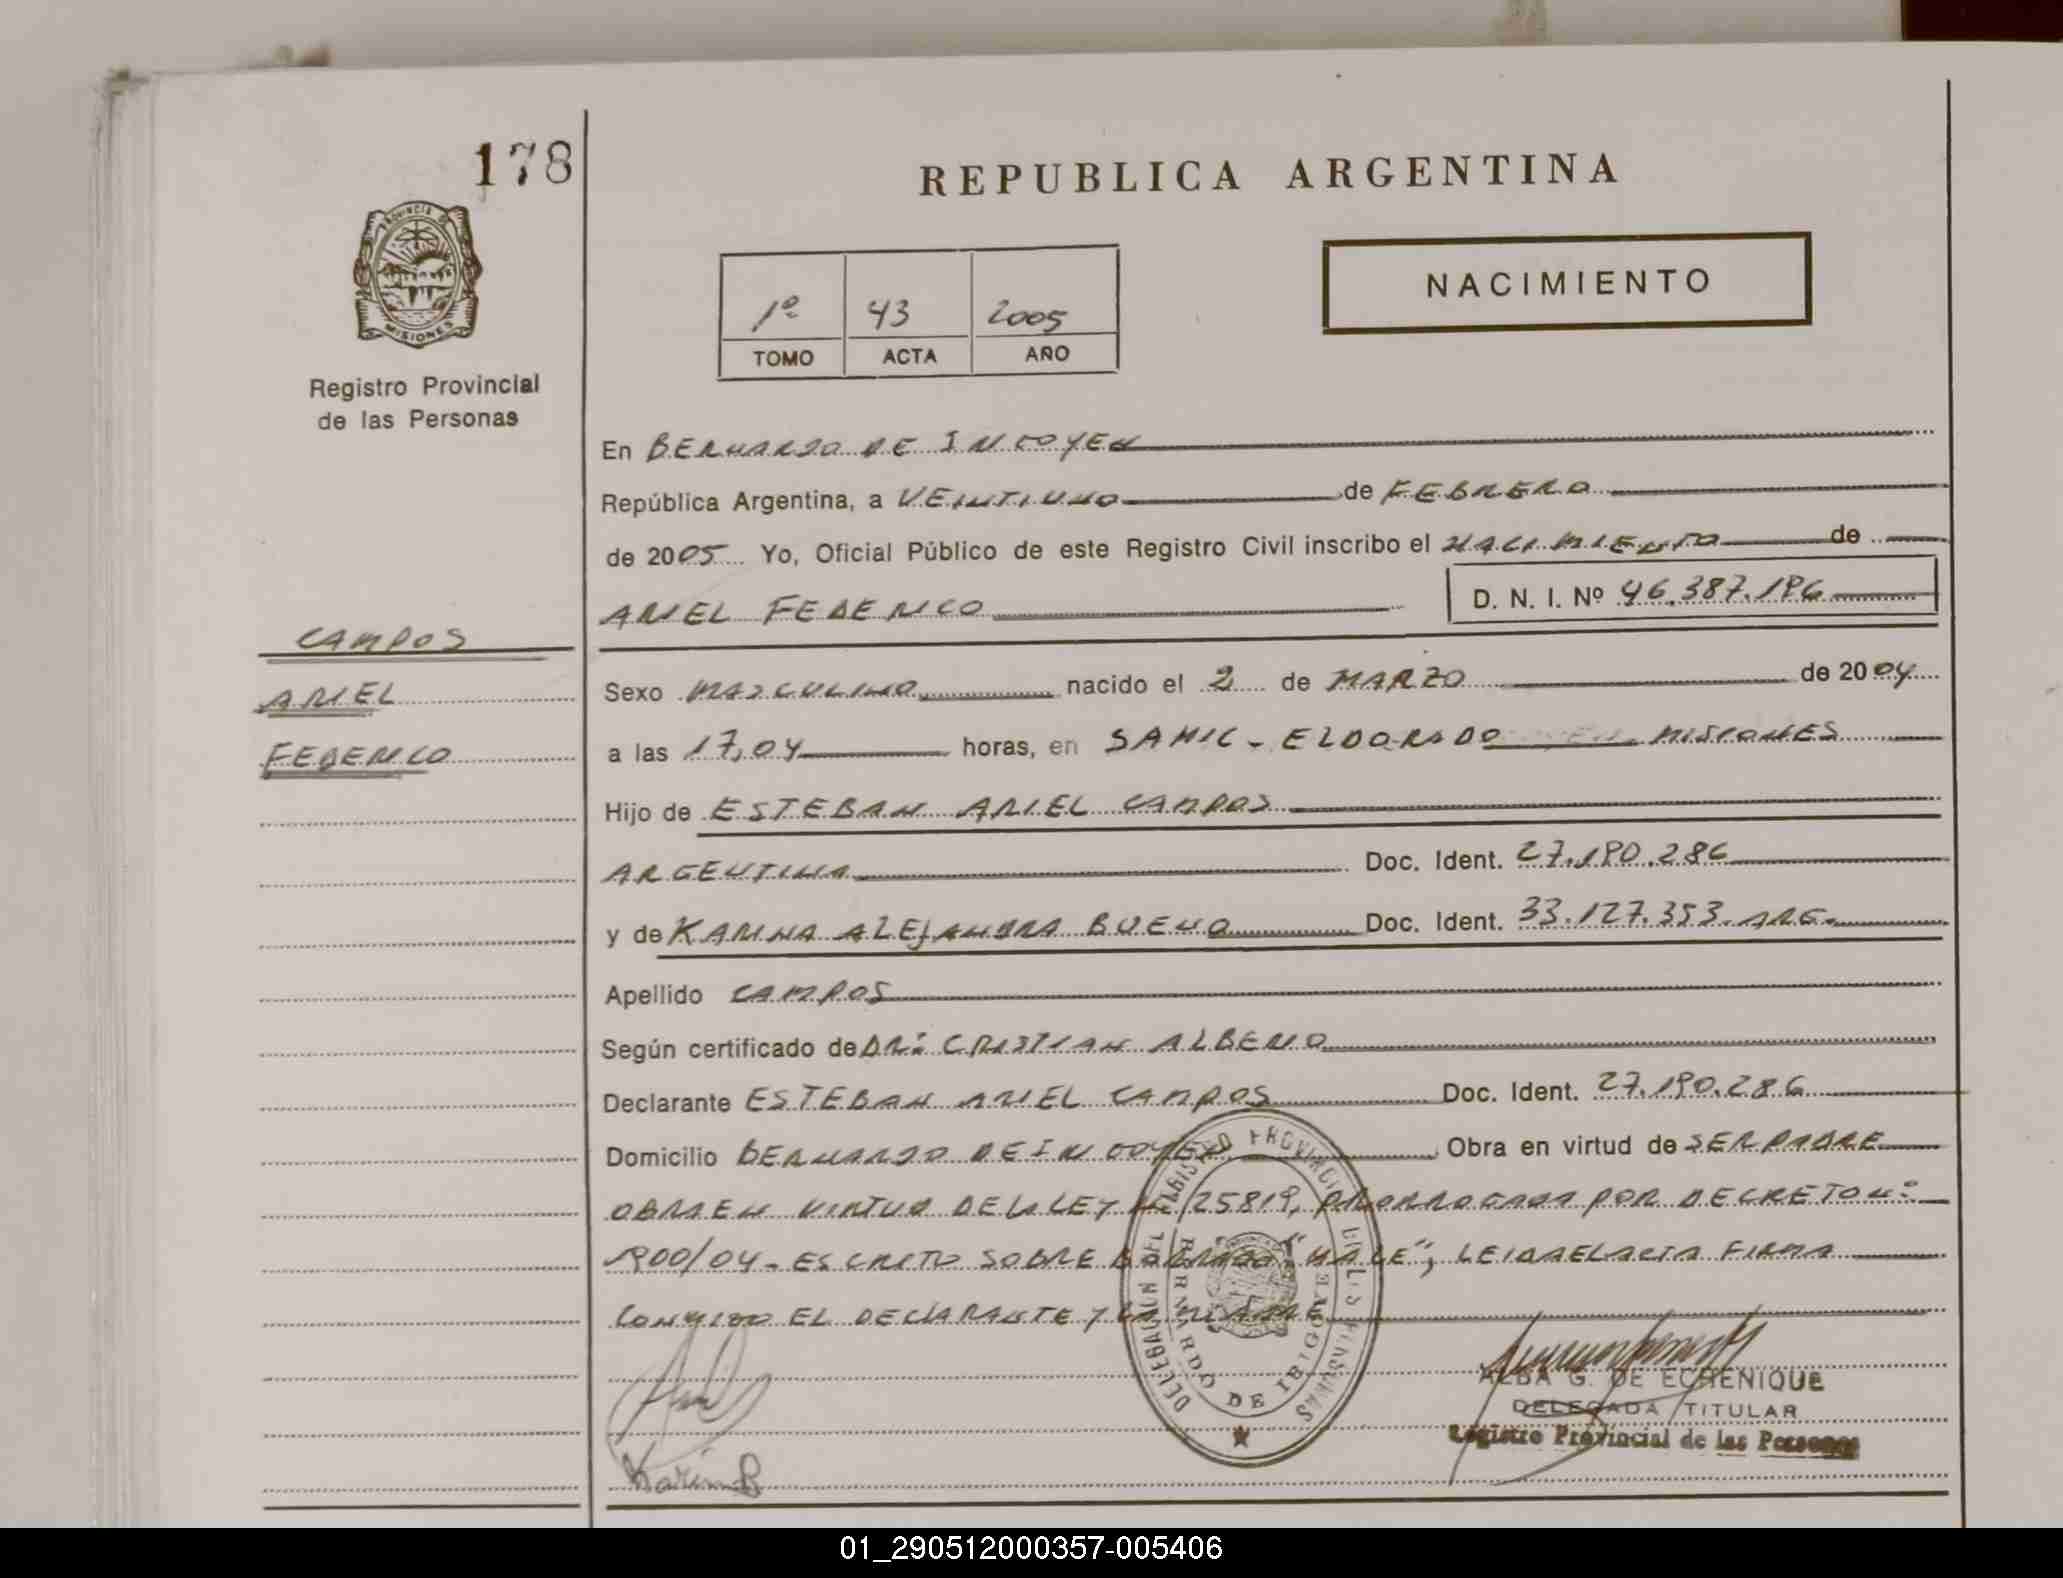 178
REPUBLICA ARGENTINA
PROVINCIA DE
MISIONES
Registro Provincial
de las Personas
NACIMIENTO
1º 43 2005
TOMO ACTA AÑO
En BERNARDO DE IRIGOYEN
República Argentina, a VEINTIUNO de FEBRERO
de 2005 Yo, Oficial Público de este Registro Civil inscribo el NACIMIENTO de
ARIEL FEDERICO D. N. I. Nº 46.387.196
CAMPOS
ARIEL
FEDERICO
Sexo MASCULINO nacido el 2 de MARZO de 2004
a las 17,04 horas, en SAMIC - ELDORADO MISIONES
Hijo de ESTEBAN ARIEL CAMPOS
ARGENTINA Doc. Ident. 27.190.286
y de KARINA ALEJANDRA BUENO Doc. Ident. 33.127.353 ARG.
Apellido CAMPOS
Según certificado de DR: CRISTIAN ALBERIO
Declarante ESTEBAN ARIEL CAMPOS Doc. Ident. 27.190.286
Domicilio BERNARDO DE IRIGOYEN Obra en virtud de SER PADRE
OBRA EN VIRTUD DE LA LEY Nº 25819, PRORROGADA POR DECRETO Nº
1900/04 - ESCRITO SOBRE BORRADO "NACE", LEIDA EL ACTA FIRMA
CONMIGO EL DECLARANTE Y LA MADRE
DELEGACION DEL REGISTRO PROVINCIAL DE LAS PERSONAS
BERNARDO DE IRIGOYEN
ALBA G. DE ECHENIQUE
DELEGADA TITULAR
Registro Provincial de las Personas
Karina B
01_290512000357-005406